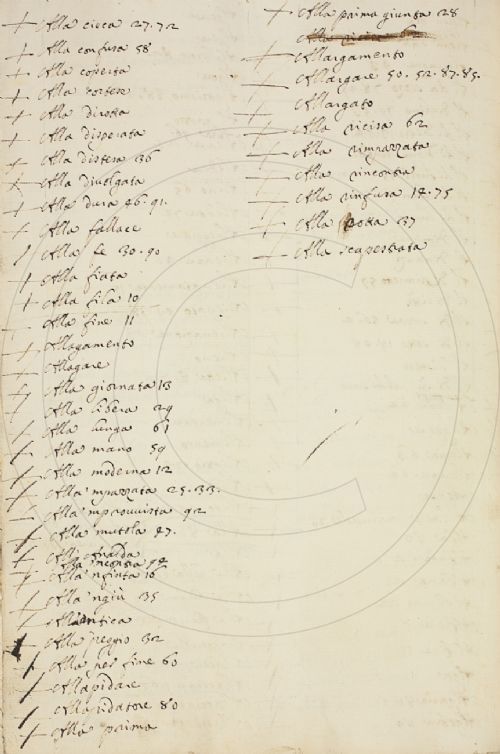 Alla cieca 27.72
Alla confusa 58
Alla coperta
Alla cortese
Alla dirotta
Alla disperata
Alla distesa 36
Alla divulgata
Alla dura 46.91.
Alla fallace
Alla fe 30.90
Alla fiata
Alla fila 10
Alla fine 11
Allagamento
Allagare
Alla giornata 13
Alla libera 29
Alla lunga 61
Alla mano 59
Alla moderna 12
Alla mpazzata 25.33.
Alla mprovvista 92
Alla mutola 47.
Alla
Alla ncontra
Alla nfinta 16
Alla ngiù 35
Alla ntica
Alla peggio 32
Alla per fine 60
Allapidare
Allapidatore 80
Alla prima
Alla prima giunta 28
Allargamento
Allargare 50.52.87.85.
Allargato
Alla ricisa 62
Alla rimpazzata
Alla rincontra
Alla rinfusa 14.75
Alla rotta 37
Alla scapestrata